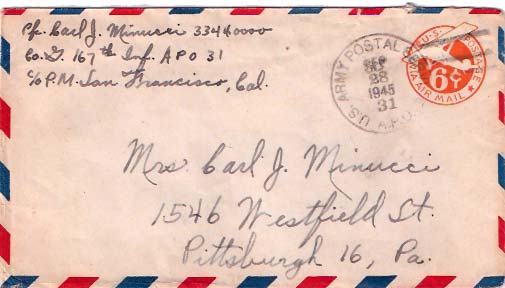 Pfc. Carl J. Minucci 33440000
Co. G. 167th Inf. A P O 31
c/o P.M. San Francisco, Cal.
U.S. ARMY POSTAL S
SEP
28
1945
31
A.P.O.
U.S. POSTAGE
6¢
VIA AIR MAIL
Mrs Carl J. Minucci
1546 Westfield St.
Pittsburgh 16, Pa.